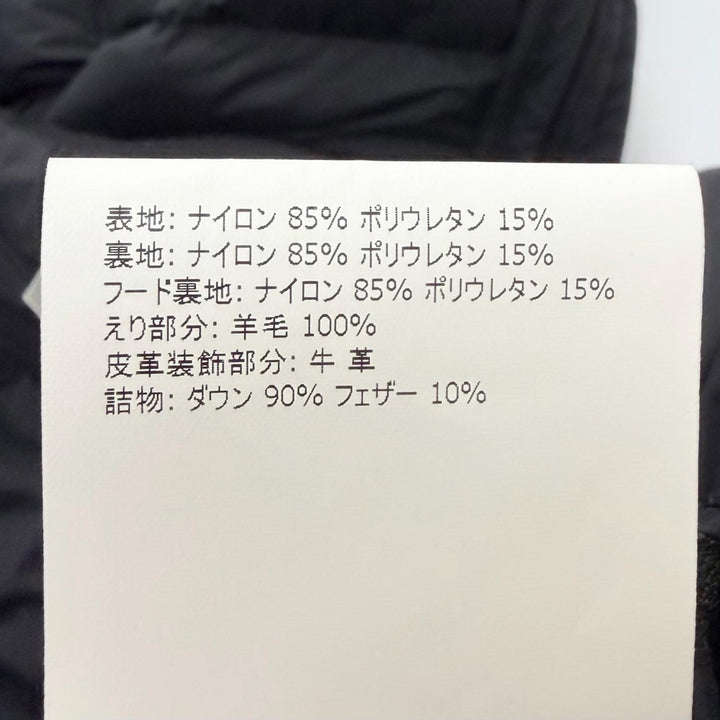 表地: ナイロン 85% ポリウレタン 15%
裏地: ナイロン 85% ポリウレタン 15%
フード裏地: ナイロン 85% ポリウレタン 15%
えり部分: 羊毛 100%
皮革装飾部分: 牛 革
詰物: ダウン 90% フェザー 10%